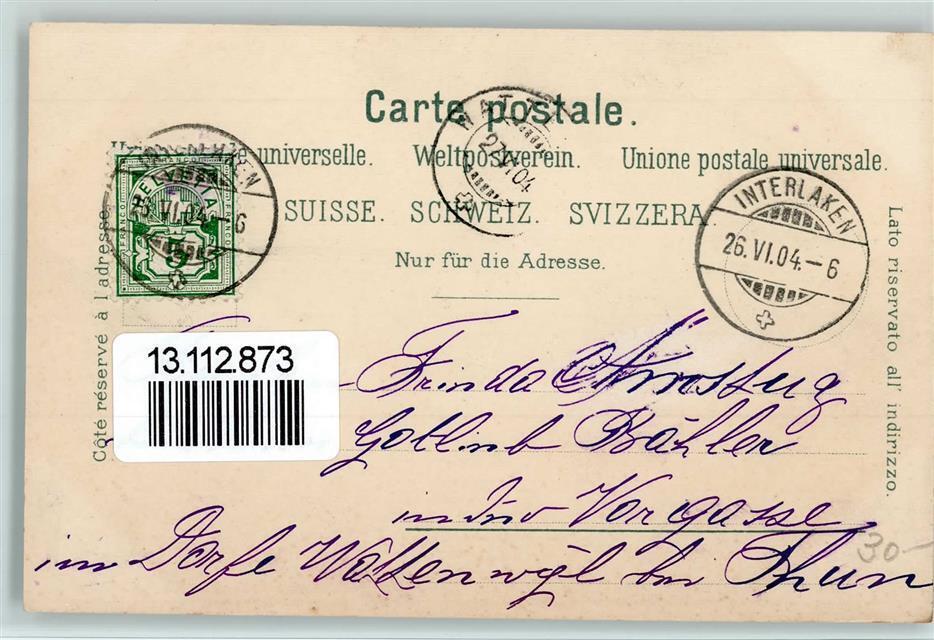 Carte postale.
universelle. Weltpostverein. Unione postale universale.
SUISSE. SCHWEIZ. SVIZZERA
Nur für die Adresse.
Côté réservé à l'adresse
Lato riservato all' indirizzo.
HELVETIA
FRANCO
5
VI.04.-6
27.VI.04
INTERLAKEN
26.VI.04.-6
13.112.873
Frinda
Gottlieb Bähler
Vorgasse
im Dorfe Wattenwyl bei Thun
30-